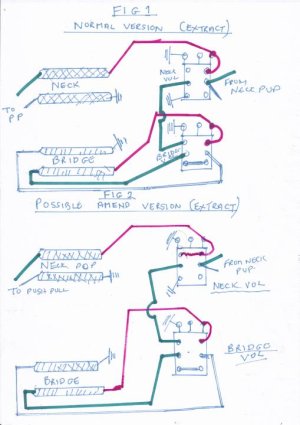 FIG 1
NORMAL VERSION (EXTRACT)
NECK
VOL
FROM
NECK PUP
NECK
TO
PP
BRIDGE
BRIDGE
FIG 2
POSSIBLE AMEND VERSION (EXTRACT)
NECK POP
FROM NECK
PUP
TO PUSH PULL
NECK VOL
BRIDGE
VOL
BRIDGE